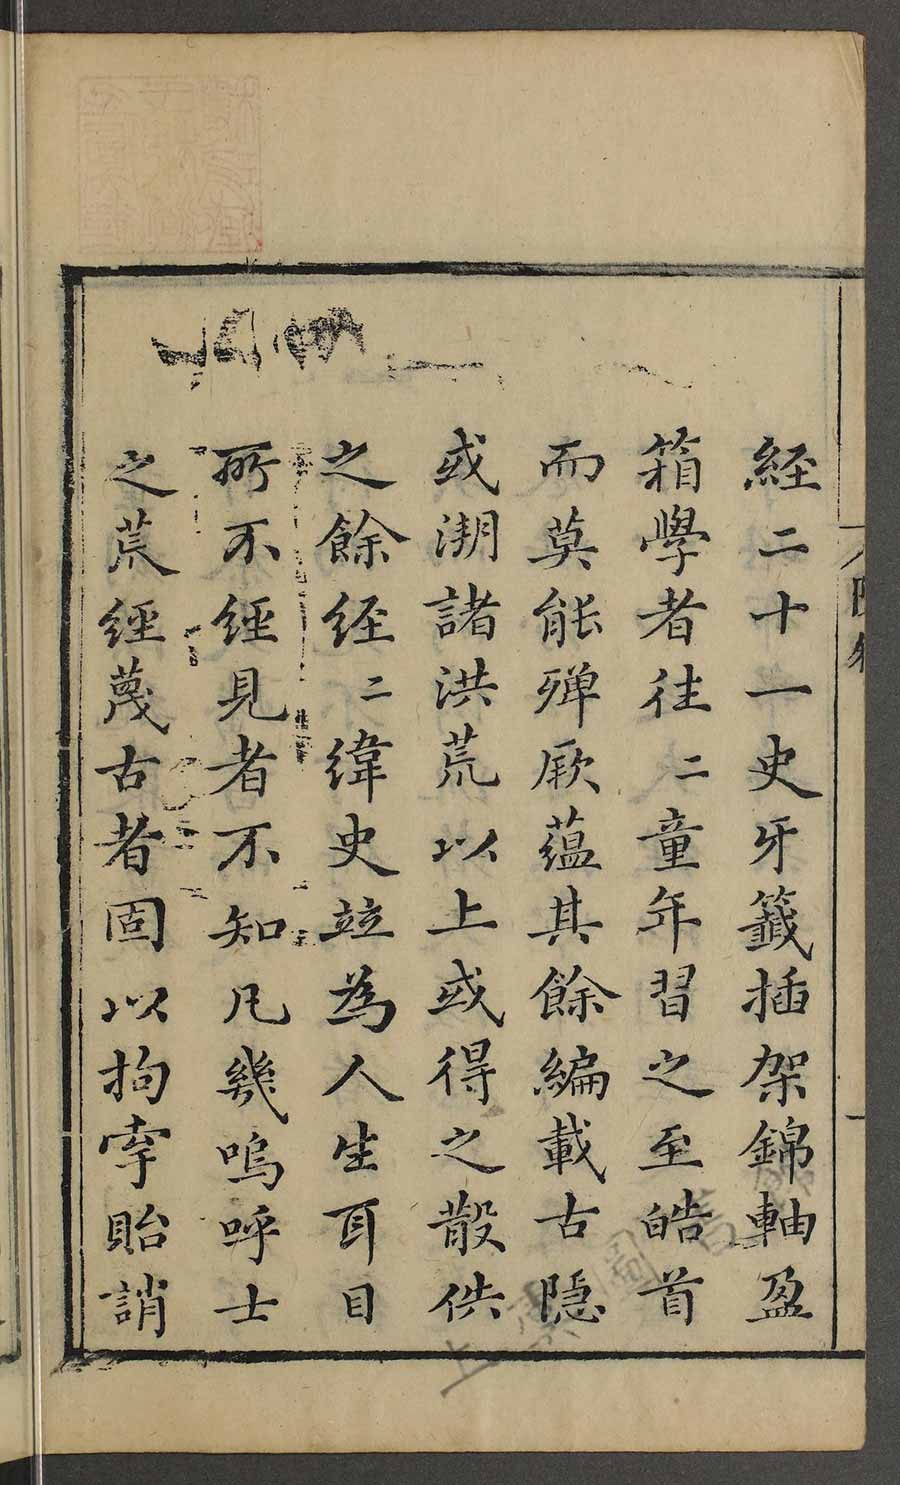 経二十一史牙籤插架錦軸盈
箱學者往二童年習之至皓首
而莫能殫厥蕴其餘編載古隐
或溯諸洪荒以上或得之散佚
之餘経二緯史竝為人生耳目
所不經見者不知凡幾嗚呼士
之荒經蔑古者固以拘牽貽誚